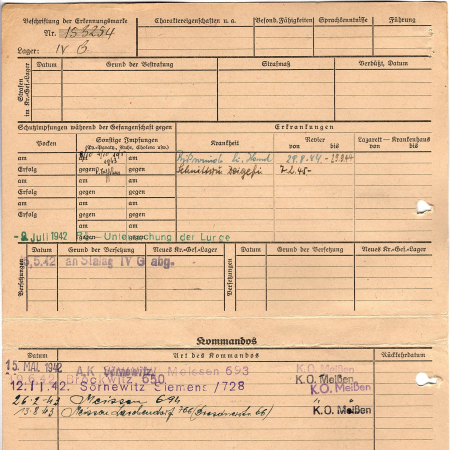 Beschriftung der Erkennungsmarke
Charaktereigenschaften u. a.
Besond. Fähigkeiten
Sprachkenntnisse
Führung
Nr. 156254
Lager: IV G
Strafen im Kr.-Gef.-Lager
Datum
Grund der Bestrafung
Strafmaß
Verbüßt, Datum
Schutzimpfungen während der Gefangenschaft gegen
Erkrankungen
Pocken
Sonstige Impfungen
(Ty.-Paraty., Ruhr, Cholera usw.)
Krankheit
Revier
von bis
Lazarett — Krankenhaus
von bis
am
am
li. Hand
29.8.44
Erfolg
gegen
7.2.45-
am
am
Erfolg
gegen
am
am
Erfolg
gegen
am
gegen
- 9. Juli 1942
Untersuchung der Lunge
Versetzungen
Datum
Grund der Versetzung
Neues Kr.-Gef.-Lager
Versetzungen
Datum
Grund der Versetzung
Neues Kr.-Gef.-Lager
5.5.42 an Stalag IV G abg.
Kommandos
Datum
Art des Kommandos
Rückkehrdatum
15. MAI 1942
A.K. Meissen 693
K.O. Meißen
Brockwitz 650
K.O. Meißen
12.11.42. Sörnewitz Siemens /728
26.2.43 Meissen 694
" "
13.8.43
K.O. Meißen